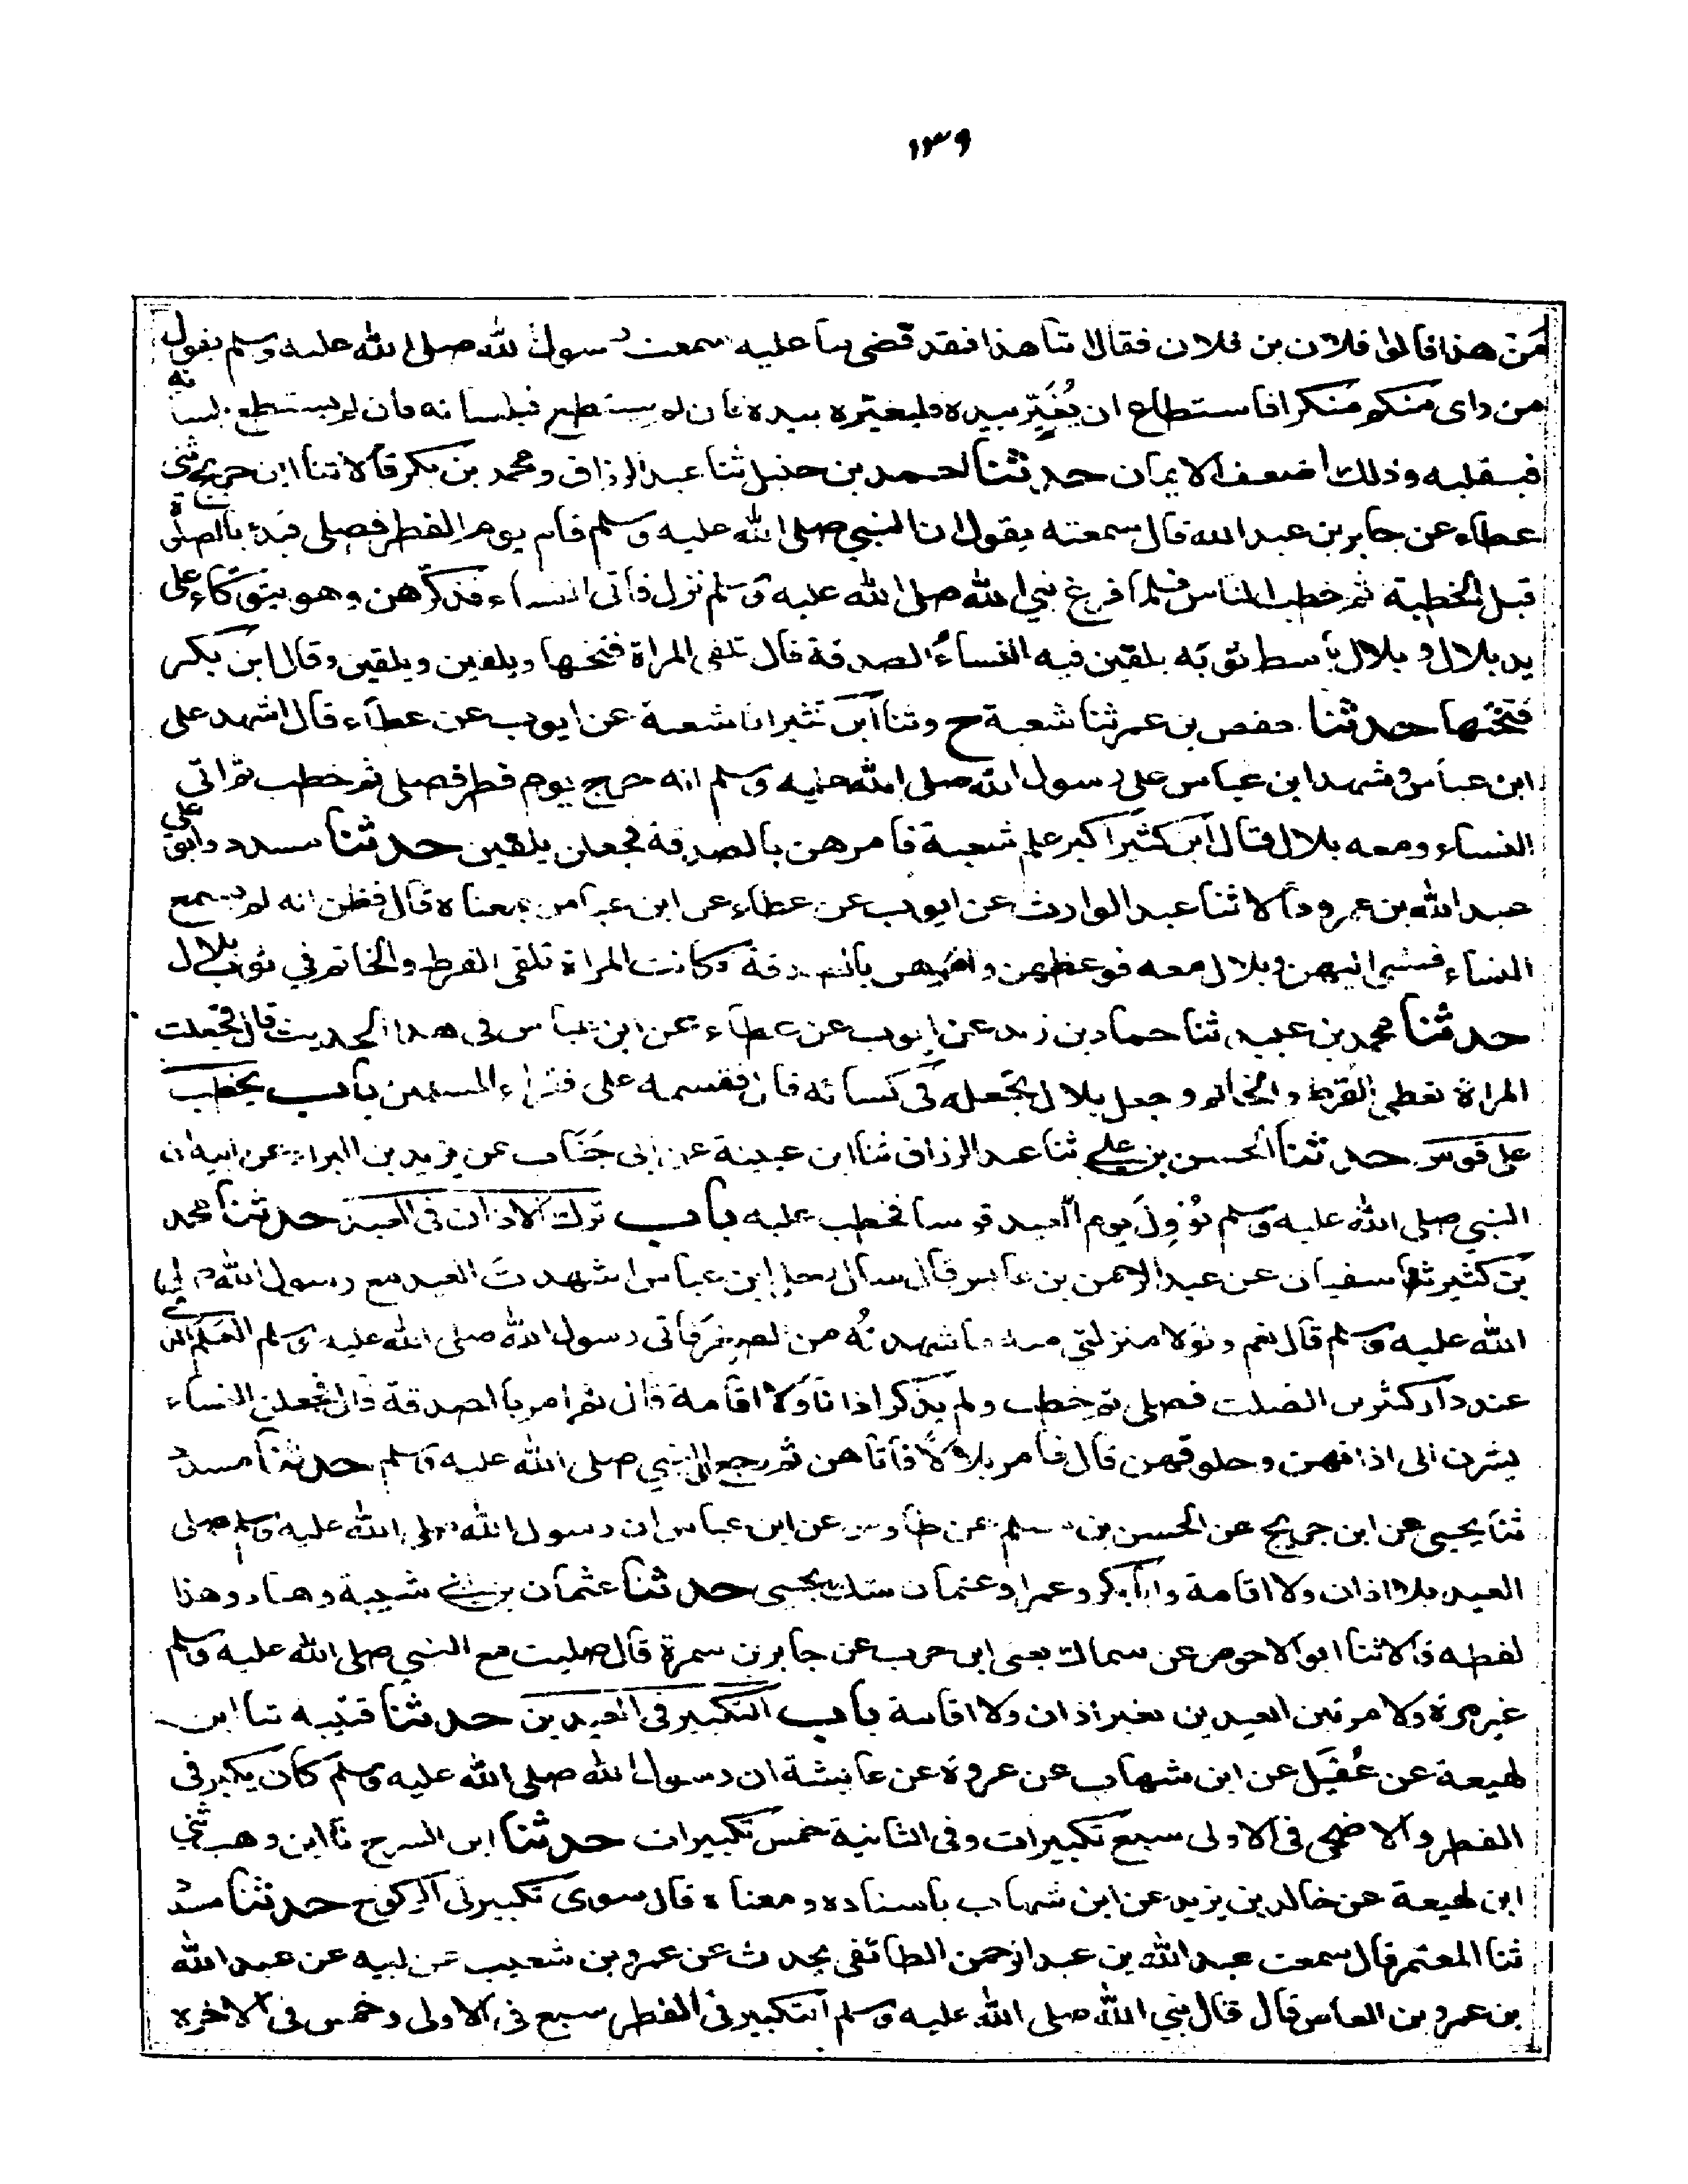 ١٣٩
من هذا قالوا فلان بن فلان فقال اما هذا فقد قضى ما عليه سمعت رسول الله صلى الله عليه وسلم يقول
من راى منكم منكرا فاستطاع ان يُغَيِّر بيده فليغيره بيده فان لم يستطع فبلسانه فان لم يستطع بلسانه
فبقلبه وذلك اضعف الايمان حدثنا احمد بن حنبل ثنا عبد الرزاق ومحمد بن بكر قالا انا ابن جريج ثنى
عطاء عن جابر بن عبد الله قال سمعته يقول ان النبي صلى الله عليه وسلم قام يوم الفطر فصلى فبدء بالصلوة
قبل الخطبة ثم خطب الناس فلما فرغ نبي الله صلى الله عليه وسلم نزل فاتى النساء فذكرهن وهو يتوكاء على
يد بلال وبلال باسط ثوبه يلقين فيه النساء الصدقة قال تلقى المراة فتخها ويلقين ويلقين وقال ابن بكر
فتختها حدثنا حفص بن عمر ثنا شعبة ح وثنا ابن كثير انا شعبة عن ايوب عن عطاء قال اشهد على
ابن عباس وشهد ابن عباس على رسول الله صلى الله عليه وسلم انه خرج يوم فطر فصلى ثم خطب ثم اتى
النساء ومعه بلال قال ابن كثير اكبر علم شعبة فامرهن بالصدقة فجعلن يلقين حدثنا مسدد وابو
عبد الله بن عمرو قالا ثنا عبد الوارث عن ايوب عن عطاء عن ابن عباس بمعناه قال فظن انه لم يسمع
النساء فمشى اليهن وبلال معه فوعظهن وامرهن بالصدقة وكانت المراة تلقى القرط والخاتم في ثوب بلال
حدثنا محمد بن عبيد ثنا حماد بن زيد عن ايوب عن عطاء عن ابن عباس فى هذا الحديث قال فجعلت
المراة تعطى القرط والخاتم وجعل بلال يجعله فى كسائه قال فقسمه على فقراء المسلمين باب يخطب
على قوس حدثنا الحسن بن علي ثنا عبد الرزاق ثنا ابن عيينة عن ابى جَنَاب عن يزيد بن البراء عن ابيه ان
النبي صلى الله عليه وسلم نُوِولَ يوم العيد قوسا فخطب عليه باب ترك الاذان فى العيد حدثنا محمد
بن كثير ثنا سفيان عن عبد الرحمن بن عابس قال سال رجل ابن عباس اشهدت العيد مع رسول الله صلى
الله عليه وسلم قال نعم ولولا منزلتى منه ما شهدتُه من الصغر فاتى رسول الله صلى الله عليه وسلم العَلَم الذى
عند دار كثير بن الصلت فصلى ثم خطب ولم يذكر اذانا ولا اقامة قال ثم امر بالصدقة قال فجعلن النساء
يشرن الى اذانهن وحلوقهن قال فامر بلالا فاتاهن ثم رجع الى النبي صلى الله عليه وسلم حدثنا مسدد
ثنا يحيى عن ابن جريج عن الحسن بن مسلم عن طاوس عن ابن عباس ان رسول الله صلى الله عليه وسلم صلى
العيد بلا اذان ولا اقامة وابا بكر وعمر او عثمان شك يحيى حدثنا عثمان بن ابي شيبة وهناد وهذا
لفظه قالا ثنا ابو الاحوص عن سماك يعنى ابن حرب عن جابر بن سمرة قال صليت مع النبي صلى الله عليه وسلم
غير مرة ولا مرتين العيدين بغير اذان ولا اقامة باب التكبير فى العيدين حدثنا قتيبة ثنا ابن
لهيعة عن عُقَيل عن ابن شهاب عن عروة عن عايشة ان رسول الله صلى الله عليه وسلم كان يكبر فى
الفطر والاضحى فى الاولى سبع تكبيرات وفى الثانية خمس تكبيرات حدثنا ابن السرح نا ابن وهب ثنى
ابن لهيعة عن خالد بن يزيد عن ابن شهاب باسناده ومعناه قال سوى تكبيرتى الركوع حدثنا مسدد
ثنا المعتمر قال سمعت عبد الله بن عبد الرحمن الطائفى يحدث عن عمرو بن شعيب عن ابيه عن عبد الله
بن عمرو بن العاص قال قال نبي الله صلى الله عليه وسلم التكبير فى الفطر سبع فى الاولى وخمس فى الاخره